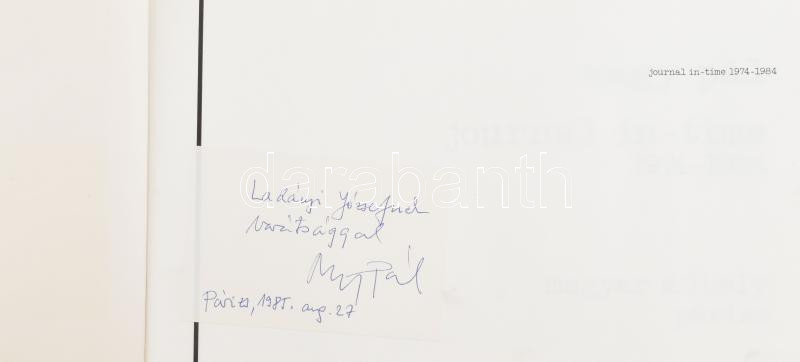 journal in-time 1974-1984
journal in-time
1974-1984
darabanth
Ladányi Józsefnek
barátsággal
Nagy Pál
Párizs, 1985. aug. 27
magyar műhely
párizs